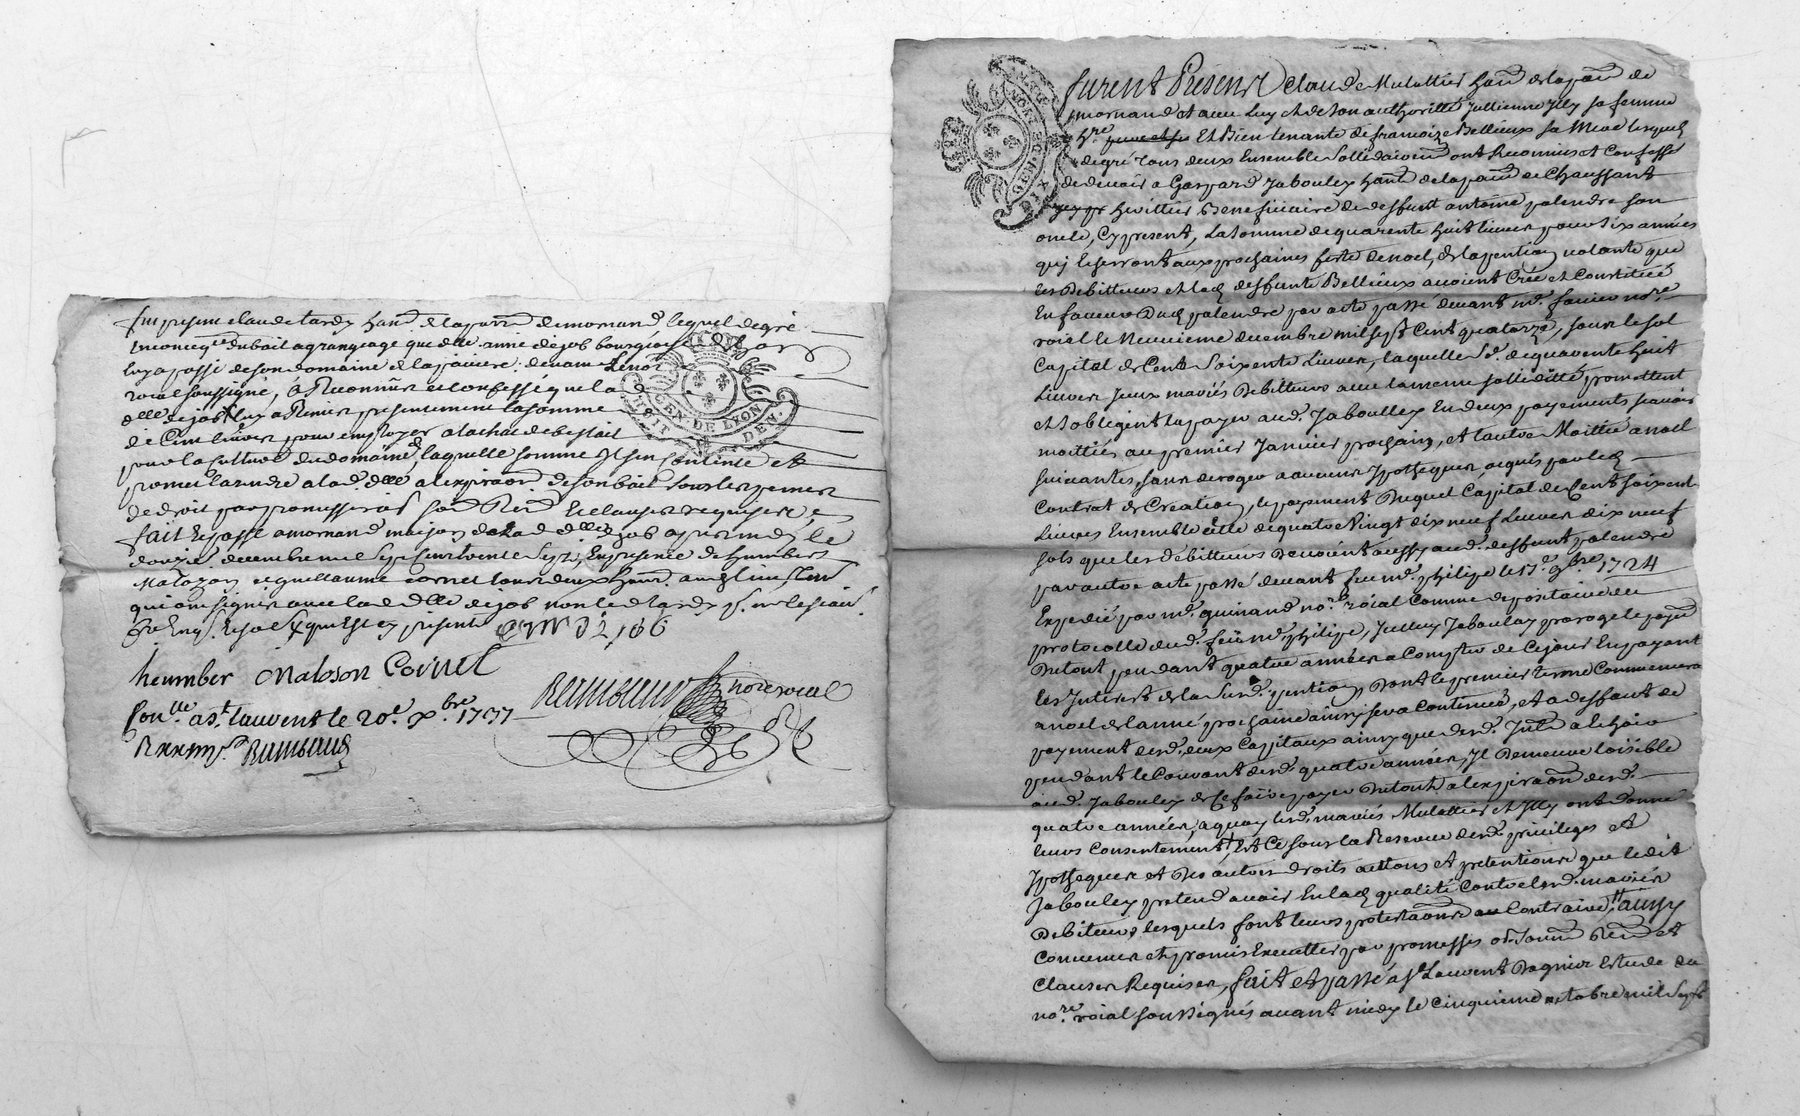 fut present claude tardy hant. de la parr. de mornand lequel de gré
en conseq.ce du bail a grangeage que d.lle anne dejob bourgeoise de Lyon
luy a passé de son domaine de la javiere devant le not.
roial soussigné, à Reconnu et confessé que la
d.lle dejob luy a Remis presentement la somme
de Cent livres pour employer a lachat de bestail
pour la culture du domaine, laquelle somme il sen contente et
promet la rendre a lad. d.lle a lexpiraon de son bail sous les peines
de droit par promesses obl. soub. Ren. et clauses requises,
fait et passé a mornand maison de lad. d.lle dejob apres midy le
douzie. decembre mil sept cent trente sept, En presence de humbert
Malozon et guillaume cornet tous deux hant. aud. lieu, tem.
qui ont signés avec lad. d.lle dejob non led. tardy p. ne le scavoir
de Enq. et som. qui Est cy presente
heumber Maloson Cornet
Rambaud no.re roial
Con.lle a S.t Laurent le 20.e xbre 1737
R Rambaud
GEN. DE LYON
furent Présent Claude Mulottier Hant de la parr de
mornand et avec luy et de son authorité Jullienne Jlly sa femme
H.re Et Bien tenante de francoize Bellieux sa Mere lesquels
de gré tous deux Ensemble sollidairem ont Reconnus et Confessé
de devoir a Gaspard Jabouley Hant de la parr de Chaussant
Heritier Beneficiaire de deffunt antoine palendre son
oncle, Cy present, La somme de quarente huit livres pour six années
qui Echerront aux prochaines feste de noel, de la pention volante que
les Debitteurs et lad. deffunte Bellieux avoient Crée et Constituée
En faveur Dud. palendre par acte passé devant m.e favier no.re
roial le Neuvieme decembre mil sept Cent quatorze, sous le sol
Capital de Cent Soixente Livres, laquelle S.e de quarente huit
Livres Jceux mariés Debitteurs avec la meme sollidité promettent
et sobligent la payer aud. Jaboulley En deux payements scavoir
moittiés au premier Janvier prochain, et l'autre Moittié a noel
suivantes, sans deroger aucuns Jpotheques acquis par led.
Contrat de Creation, le payement Duquel Capital de Cent soixente
Livres Ensemble Celle de quatre Vingt dix neuf Livres dix neuf
sols que les débitteurs devoient aussy aud. deffunt palendre
par autre acte passé devant feu m.e philipe le 17.e 9bre 1724
Expedié par m.e guinand no.re roial Comme depositaire du
protocolle dud. feu m.e philipe, Jcelluy Jabouley proroge le payem
Du tout pendant quatre années a Compter de Cejour En payant
les Jnterest de la Susd. pention, Dont le premier terme Commencera
a noel de l'anné prochaine ainsy sera Continué, et a deffaut de
payement desd. deux Capitaux ainsy que desd. Jnt. a lechoir
pendant le Courant desd. quatre années, Jl Demeure loisible
aud. Jabouley de se faire payer Du tout a lexpiraon desd.
quatre années, a quoy lesd. mariés Mulottier et Jlly ont donné
leurs Consentement, Et Ce sous la Reserve desd. privileges et
Jpotheques et Des autres droits actions et pretentions que ledit
Jabouley pretend avoir En lad. qualité Contre lesd. mariés
Debiteurs, lesquels font leurs protestaons au Contraire, ainsy
Convenu et promis Executter par promesses obl. soum. Ren. et
Clauses Requises, fait et passé a S.t Laurent Dagnier Estude du
no.re roial soussignés avant midy le Cinquieme octobre mil sept